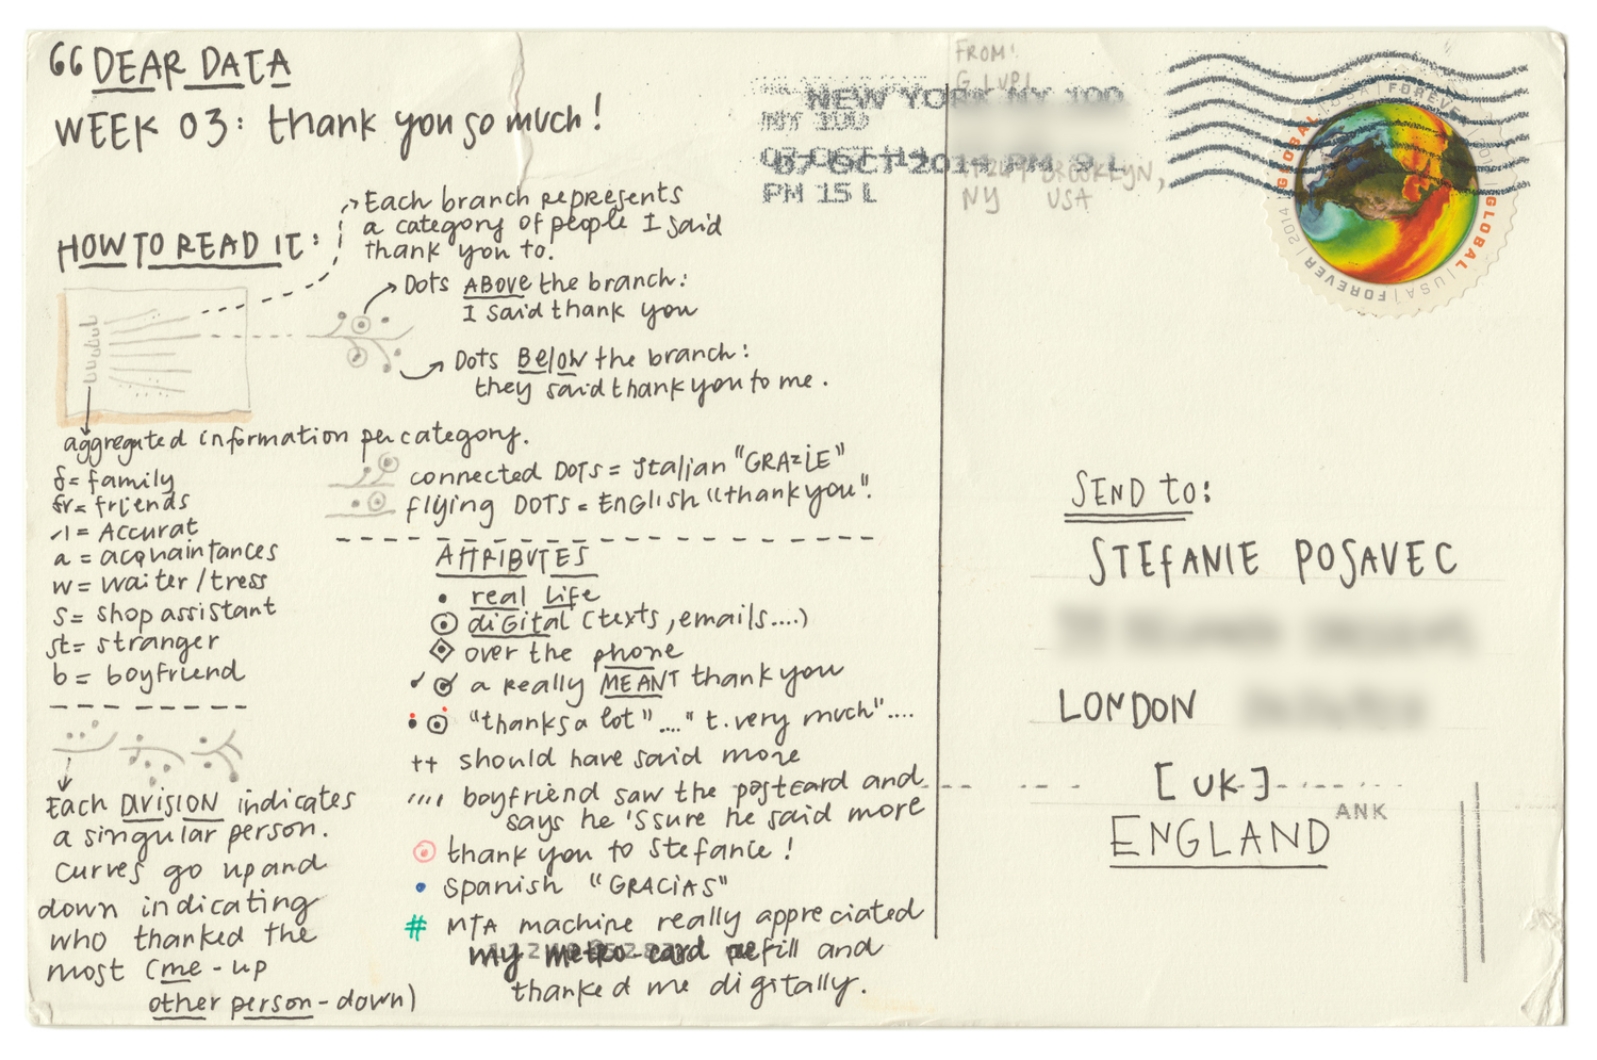 66 DEAR DATA
WEEK 03: thank you so much!
HOW TO READ IT:
Each branch represents
a category of people I said
thank you to.
Dots ABOVE the branch:
I said thank you
Dots BELOW the branch:
they said thank you to me.
aggregated information per category.
f= family
fr= friends
= Accurat
a = acquaintances
w= waiter/tress
s= shop assistant
st= stranger
b = boyfriend
connected DOTS = Italian "GRAZIE"
flying DOTS = ENGlish "thank you".
Each DIVISION indicates
a singular person.
Curves go up and
down indicating
who thanked the
most (me - up
other person - down)
ATTRIBUTES
real life
diGital (texts, emails....)
over the phone
a really MEANT thank you
"thanks a lot"...." t. very much"....
++ should have said more
boyfriend saw the postcard and
says he 's sure he said more
thank you to Stefanie!
Spanish "GRACIAS"
# MTA machine really appreciated
my metro-card refill and
thanked me digitally.
FROM:
GIORGIA
BROOKLYN,
NY USA
NEW YORK NY 100
NY 100
07 OCT 2014 PM 9 L
PM 15 L
GLOBAL | FOREVER | 2014 | GLOBAL | USA | FOREVER | 2014
SEND to:
STEFANIE POSAVEC
LONDON
[UK]
ANK
ENGLAND